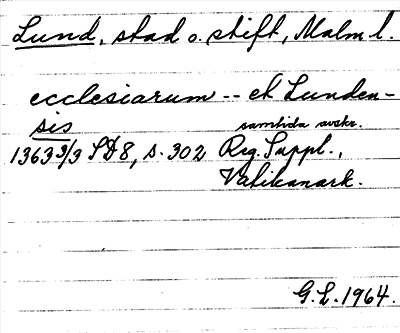 Lund, stad o. stift, Malm l.
ecclesiarum -- et Lunden-
sis samtida avskr.
1363 3/3 SD8, s. 302 Reg. Suppl.,
Vatikanark.
G.L. 1964.